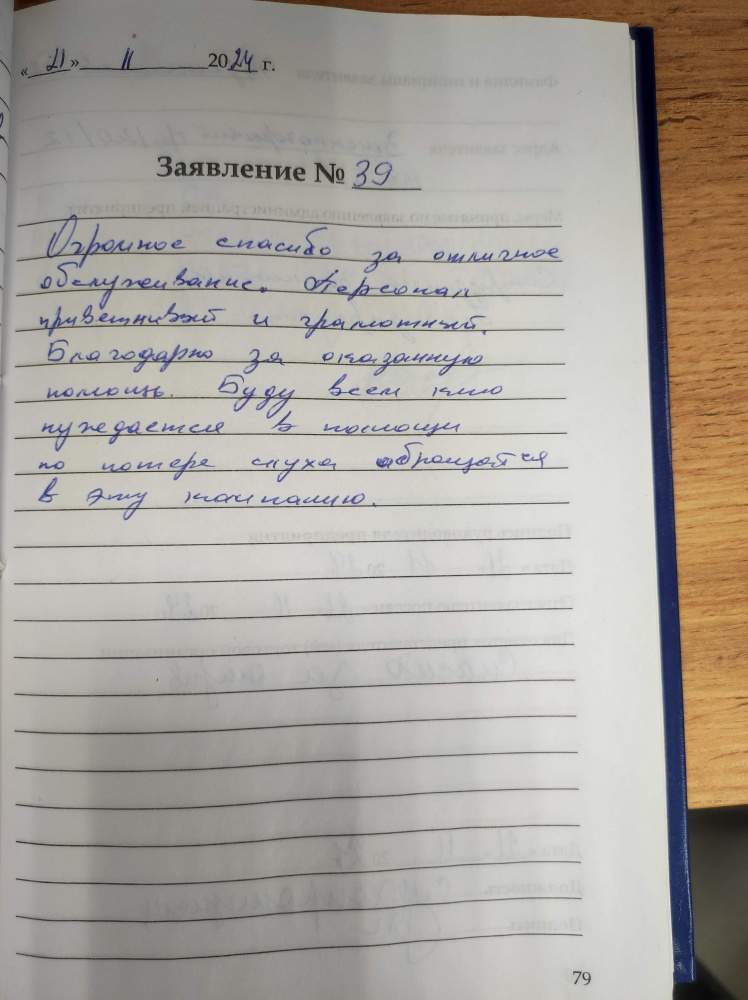 « 21 » 11 2024 г.
Заявление № 39
Огромное спасибо за отличное
обслуживание. Персонал
приветливый и грамотный.
Благодарю за оказанную
помощь. Буду всем кто
нуждается в помощи
по потере слуха обращатся
в эту компанию.
79